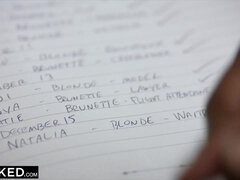 BLONDE
BRUNETTE -
MBER 13
- BLONDE - MODEL
VA - BRUNETTE - LAWYER
TIE - BRUNETTE - FLIGHT ATTENDANT
DECEMBER 15
NATALIA - BLONDE - WAIT
KED.COM